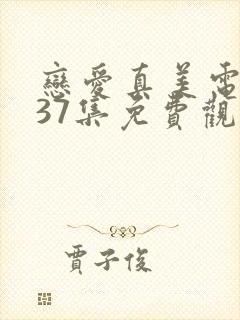 戀愛真美電
37集免費觀
賈子俊